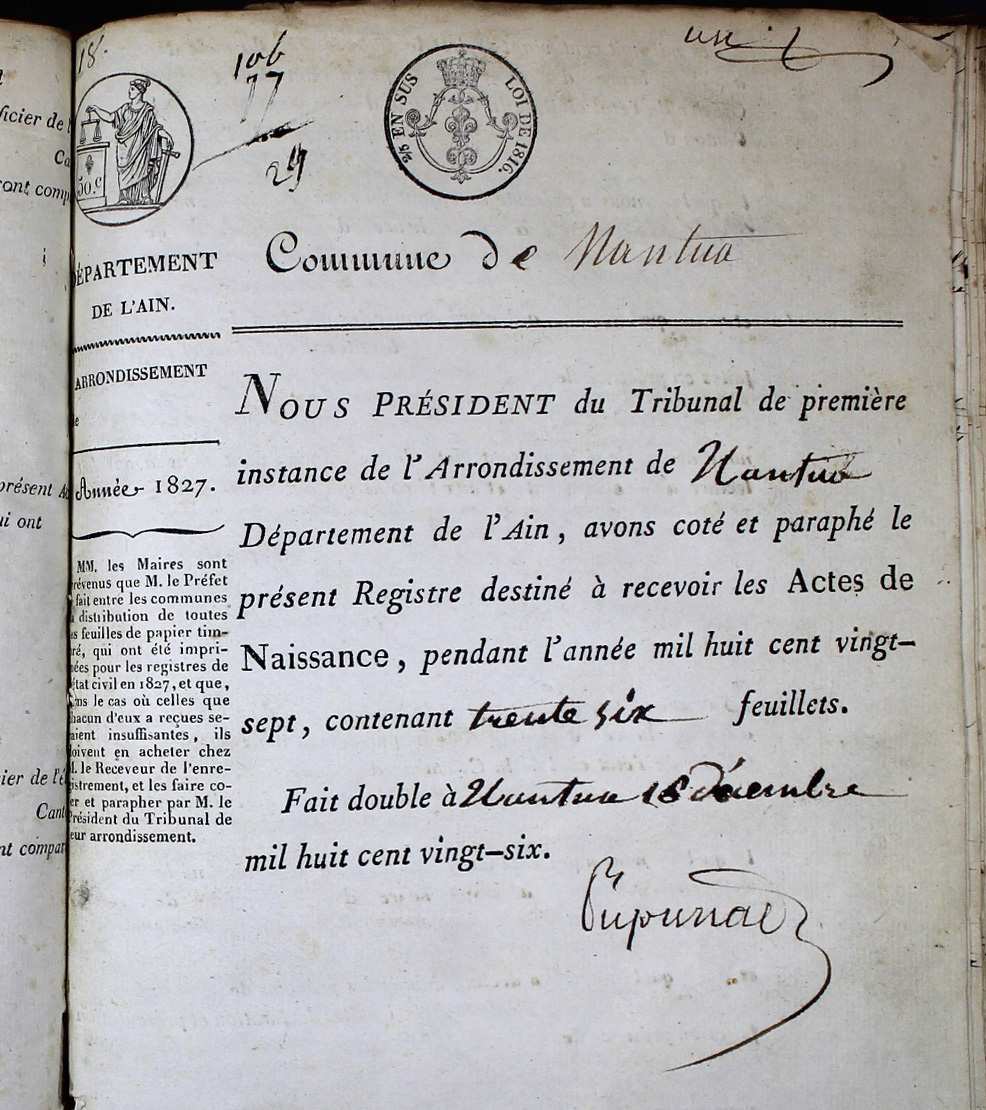 18.
106
77
29
un
50.C
2/5 EN SUS LOI DE 1816.
DÉPARTEMENT
DE L'AIN.
ARRONDISSEMENT
de
Année 1827.
MM. les Maires sont
prévenus que M. le Préfet
fait entre les communes
distribution de toutes
feuilles de papier tim-
bré, qui ont été impri-
mées pour les registres de
état civil en 1827, et que,
dans le cas où celles que
chacun d'eux a reçues se-
raient insuffisantes, ils
doivent en acheter chez
M. le Receveur de l'enre-
gistrement, et les faire co-
ter et parapher par M. le
Président du Tribunal de
leur arrondissement.
Commune de Nantua
NOUS PRÉSIDENT du Tribunal de première
instance de l'Arrondissement de Nantua
Département de l'Ain, avons coté et paraphé le
présent Registre destiné à recevoir les Actes de
Naissance, pendant l'année mil huit cent vingt-
sept, contenant trente six feuillets.
Fait double à Nantua 18 décembre
mil huit cent vingt-six.
ficier de l
ront comp
présent A
ui ont
ier de l'é
Cant
nt compar